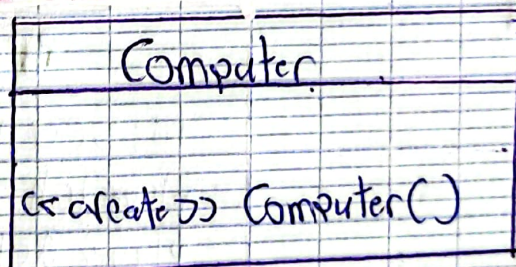 Computer
<<create>> Computer()